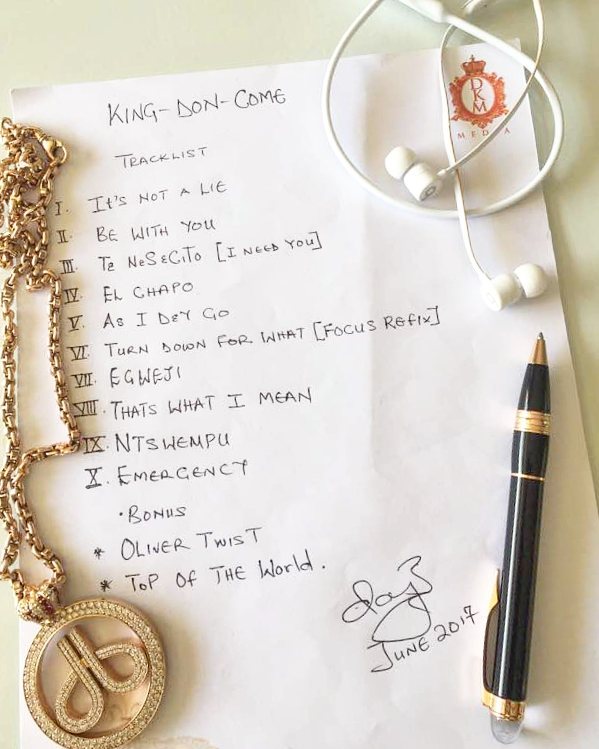 KING-DON-COME
DKM
MEDIA
TRACKLIST
I. IT'S NOT A LIE
II. BE WITH YOU
III. TE NESECITO [I NEED YOU]
IV. EL CHAPO
V. AS I DEY GO
VI. TURN DOWN FOR WHAT [FOCUS REFIX]
VII. EGWEJI
VIII. THATS WHAT I MEAN
IX. NTSWEMPU
X. EMERGENCY
• BONUS
* OLIVER TWIST
* TOP OF THE WORLD.
JUNE 2017